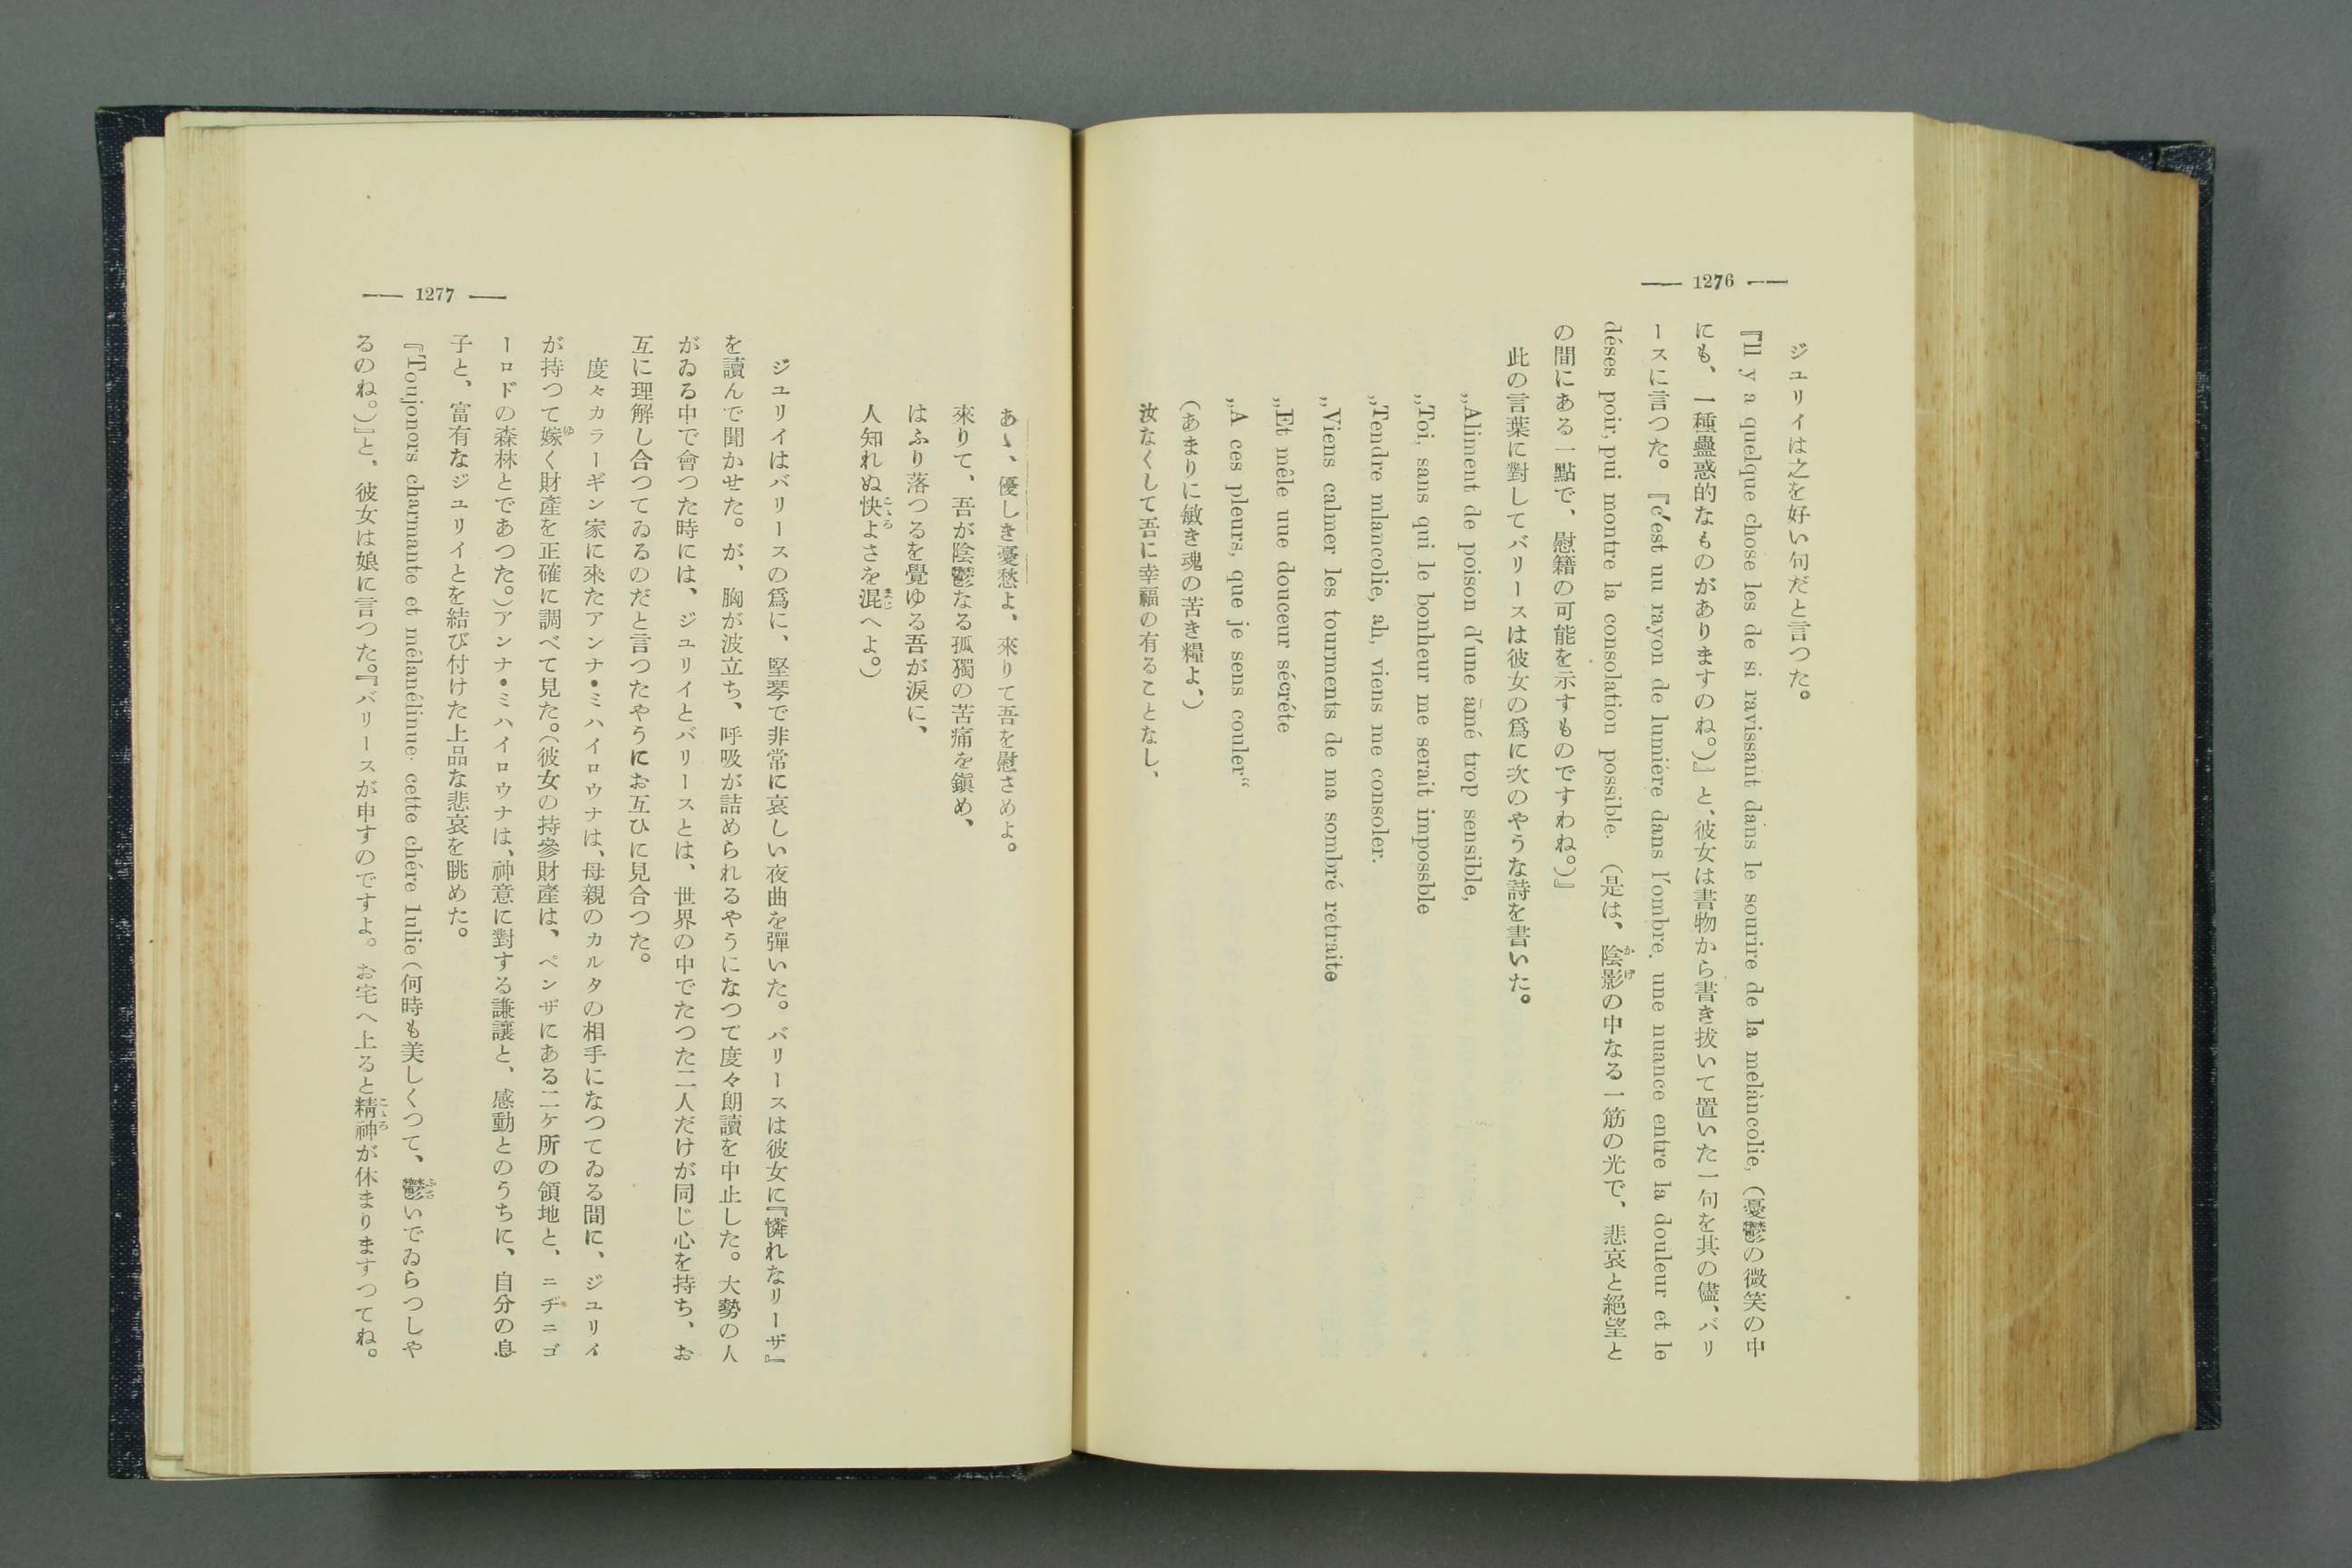 — 1276 —
ジユリイは之を好い句だと言つた。
『Il y a quelque chose les de si ravissant dans le sourire de la melancolie, (憂鬱の微笑の中
にも、一種蠱惑的なものがありますのね。)』と、彼女は書物から書き拔いて置いた一句を其の儘、バリ
ースに言つた。『c'est uu rayon de lumiére dans l'ombre, une nuance entre la douleur et le
déses poir, pui montre la consolation possible. (是は、陰影の中なる一筋の光で、悲哀と絕望と
の間にある一點で、慰籍の可能を示すものですわね。)』
此の言葉に對してバリースは彼女の爲に次のやうな詩を書いた。
„Aliment de poison d'une āmé trop sensible,
„Toi, sans qui le bonheur me serait impossble
„Tendre mlancolie, ah, viens me consoler.
„Viens calmer les tourments de ma sombré retraite
„Et mêle uue douceur sécréte
„A ces pleurs, que je sens couler“
(あまりに敏き魂の苦き糧よ、)
汝なくして吾に幸福の有ることなし、
— 1277 —
あゝ、優しき憂愁よ、來りて吾を慰さめよ。
來りて、吾が陰鬱なる孤獨の苦痛を鎭め、
はふり落つるを覺ゆる吾が淚に、
人知れぬ快よさを混へよ。)
ジユリイはバリースの爲に、堅琴で非常に哀しい夜曲を彈いた。バリースは彼女に『憐れなリーザ』
を讀んで聞かせた。が、胸が波立ち、呼吸が詰められるやうになつて度々朗讀を中止した。大勢の人
がゐる中で會つた時には、ジユリイとバリースとは、世界の中でたつた二人だけが同じ心を持ち、お
互に理解し合つてゐるのだと言つたやうにお互ひに見合つた。
度々カラーギン家に來たアンナ・ミハイロウナは、母親のカルタの相手になつてゐる間に、ジユリイ
が持つて嫁く財產を正確に調べて見た。(彼女の持參財產は、ペンザにある二ケ所の領地と、ニヂニゴ
ーロドの森林とであつた。)アンナ・ミハイロウナは、神意に對する謙讓と、感動とのうちに、自分の息
子と、富有なジユリイとを結び付けた上品な悲哀を眺めた。
『Toujonors charmante et mélanélinue. cette chére Iulie(何時も美しくつて、鬱いでゐらつしや
るのね。)』と、彼女は娘に言つた。『バリースが申すのですよ。お宅へ上ると精神が休まりますつてね。